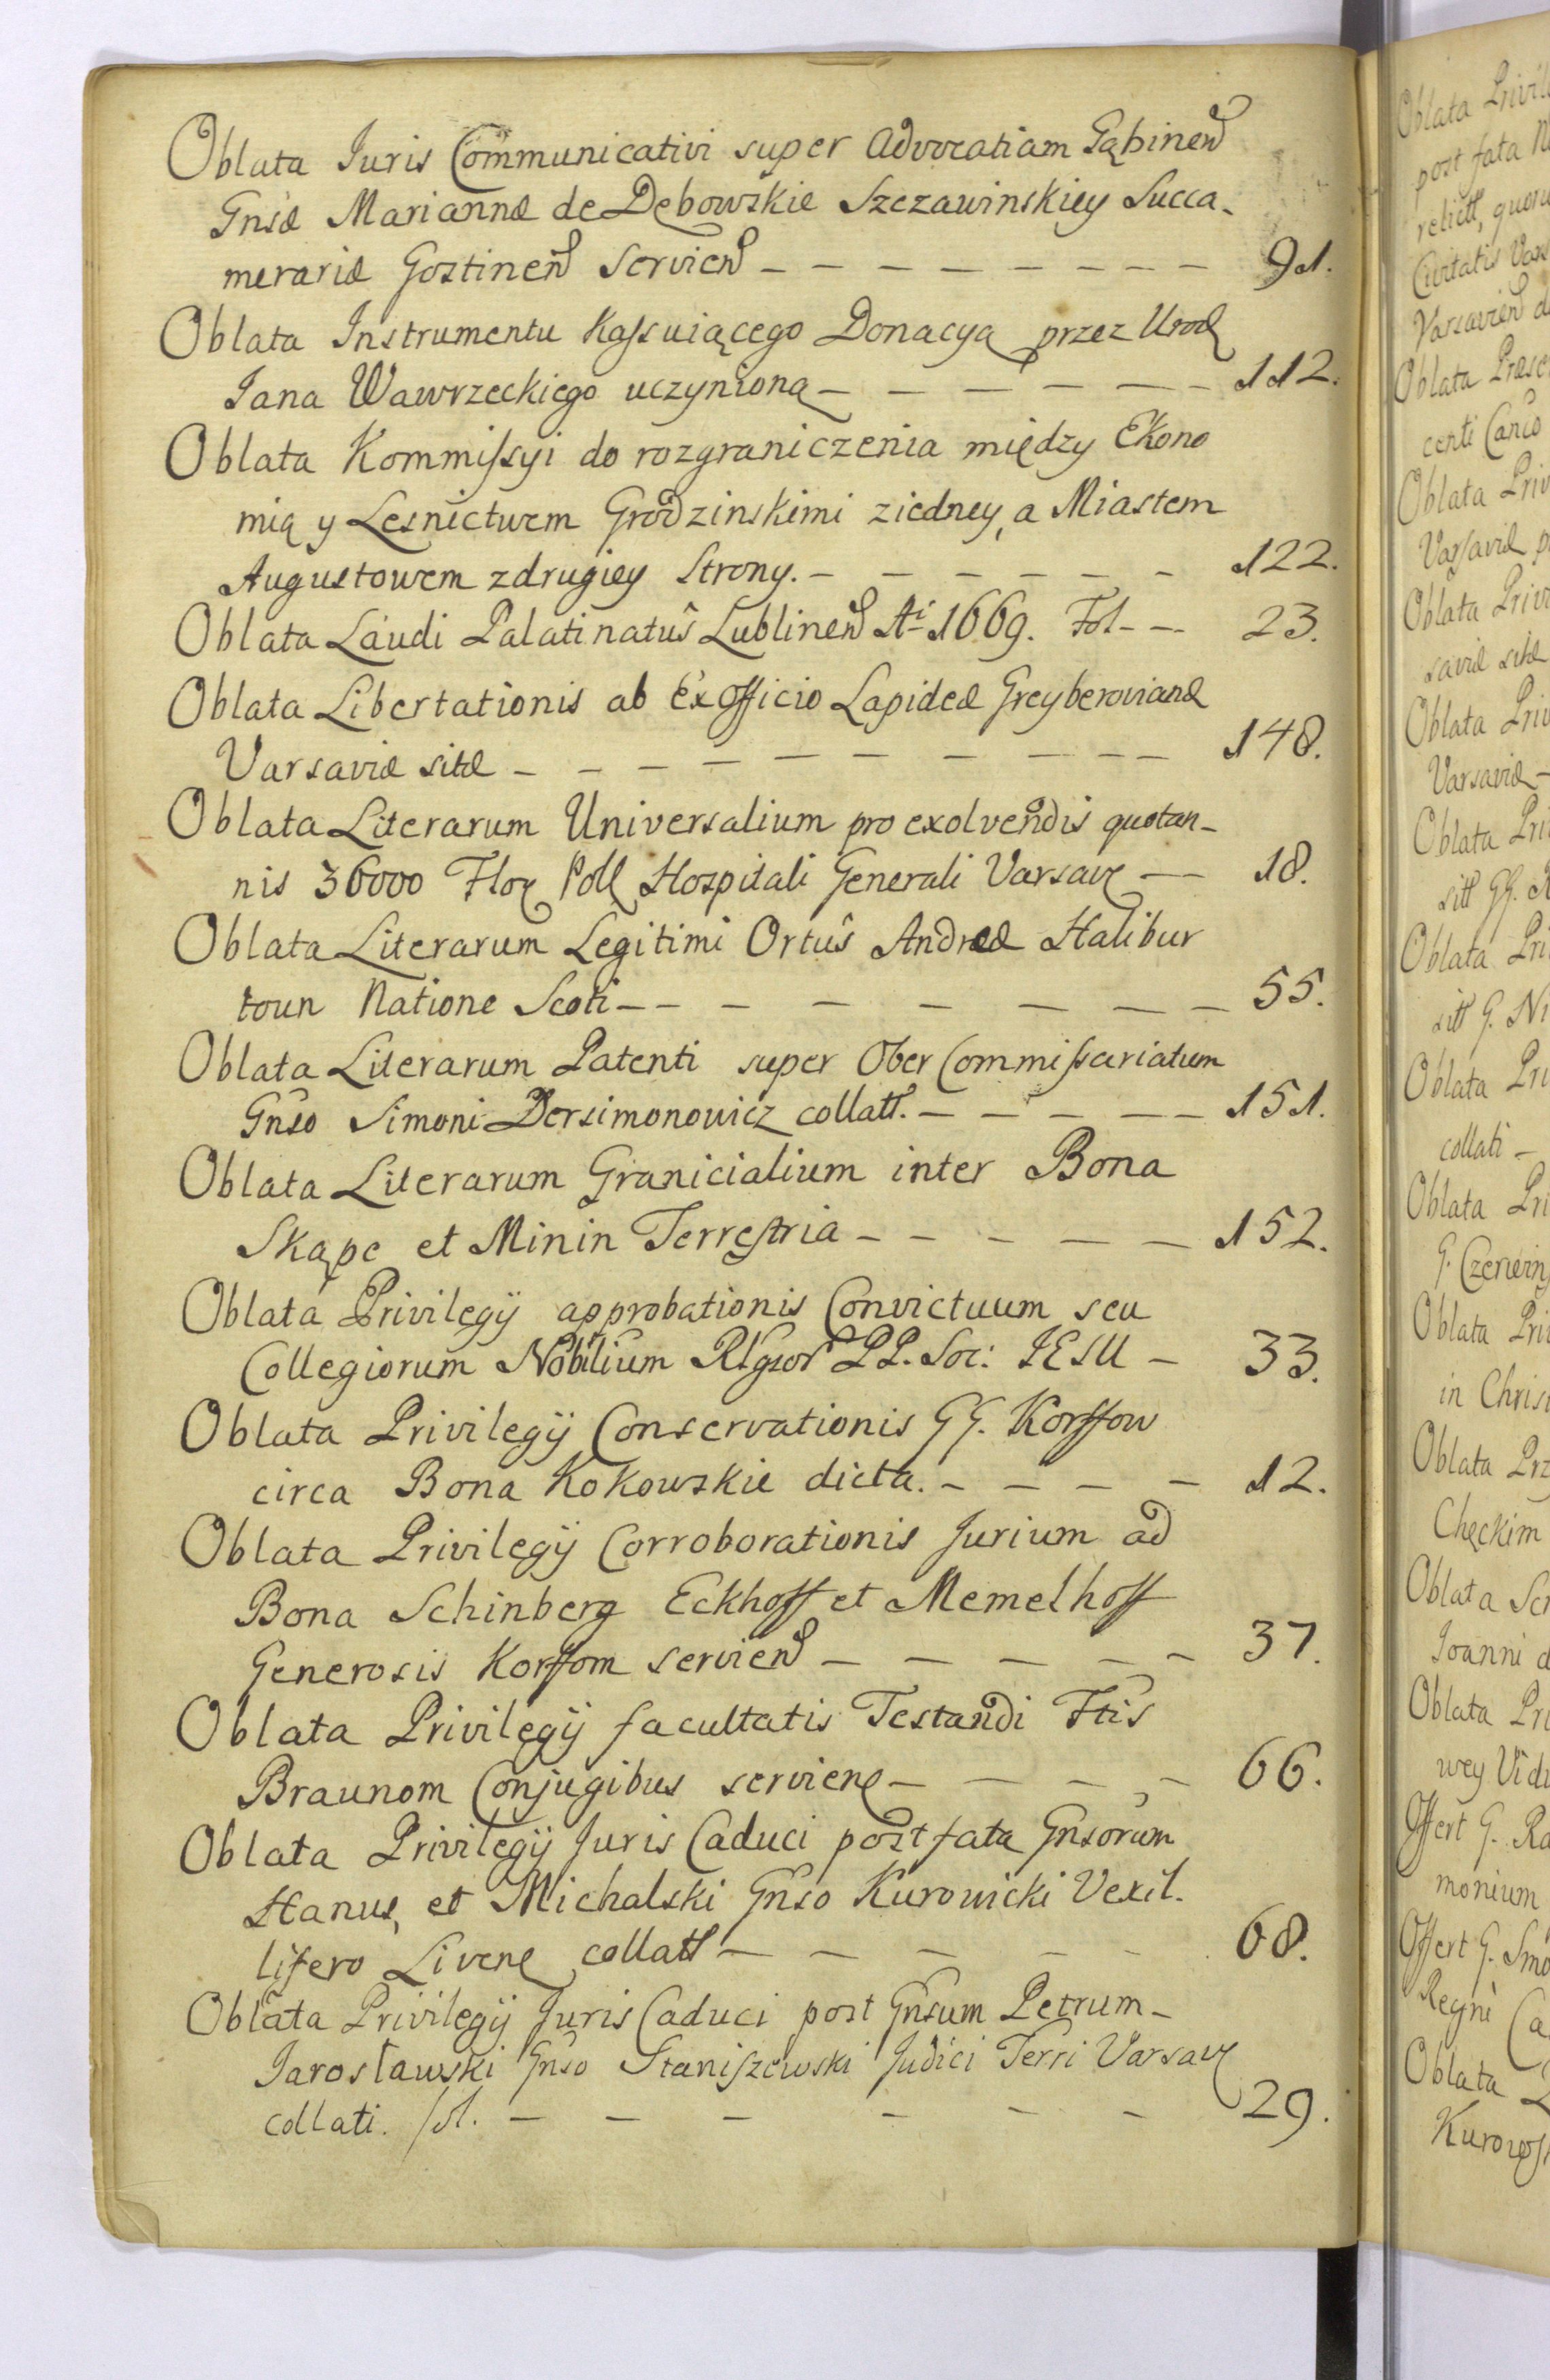 Oblata Iuris Com̃municativi super Advocatiam Gąbinen̄
Gnsæ Mariannæ de Dębowskie Szczawinskiey Succa-
merariæ Gostinen̄ Servien̄ – – – – – – – – 91.
Oblata Instrumentu Kassuiącego Donacyą przez Urod
Jana Wawrzeckiego uczynioną – – – – – – 112.
Oblata Kommissyi do rozgraniczenia między Ekono
mią y Lesnictwem Grodzinskimi ziedney, a Miastem
Augustowem zdrugiey Strony. – – – – – – 122.
Oblata Laudi Palatinatûs Lublinen̄ Ai 1669. Fol – – 23.
Oblata Libertationis ab ex Officio Lapideæ Greyberovianæ
Varsaviæ sitæ – – – – – – – – – – 148.
Oblata Literarum Universalium pro exolvendis quotan-
nis 36000 Flor Poll Hospitali Generali Varsav – 18.
Oblata Literarum Legitimi Ortûs Andreæ Halibur
toun Natione Scoti – – – – – – – – 55.
Oblata Literarum Patenti super Ober Commissariatum
Gnso Simoni Dersimonowicz collatt. – – – – – 151.
Oblata Literarum Granicialium inter Bona
Skąpe et Minin Terrestria – – – – – 152.
Oblata Privilegij approbationis Convictuum seu
Collegiorum Nobilium Rlgsor PP. Soc: IESU – 33.
Oblata Privilegij Conservationis GG. Korffow
circa Bona Kokowskie dicta. – – – – 12.
Oblata Privilegij Corroborationis Jurium ad
Bona Schinberg Eckhoff et Memelhoff
Generosis Korffom servien̄ – – – – – 37.
Oblata Privilegij facultatis Testandi Ftis
Braunom Conjugibus servien – – – – 66.
Oblata Privilegij Juris Caduci post fata Gnsorum
Hanus, et Michalski Gnso Kurowicki Vexil.
lifero Liven collatt – – – – – 68.
Oblata Privilegij Juris Caduci post Gnsum Petrum –
Jarosławski Gnso Staniszewski Judici Terri Varsav
collati. fol. – – – – – – 29.
Oblata Privil
post fata
relict, quoru
Civitatis Vars
Varsavien̄
Oblata Præse
centi
Oblata Priv
Varsaviæ p
Oblata Privi
saviæ sitæ
Oblata Priv
Varsaviæ –
Oblata Pri
sitt GG.
Oblata Pri
sitt G. Ni
Oblata Pri
collati –
Oblata Pri
G. Czerwin
Oblata Pri
in Chris
Oblata Prz
Chęckim
Oblata Scr
Joanni d
Oblata Pri
wey Vid
Offert G. Ra
monium
Offert G. Smo
Regni Ca
Oblata
Kurows